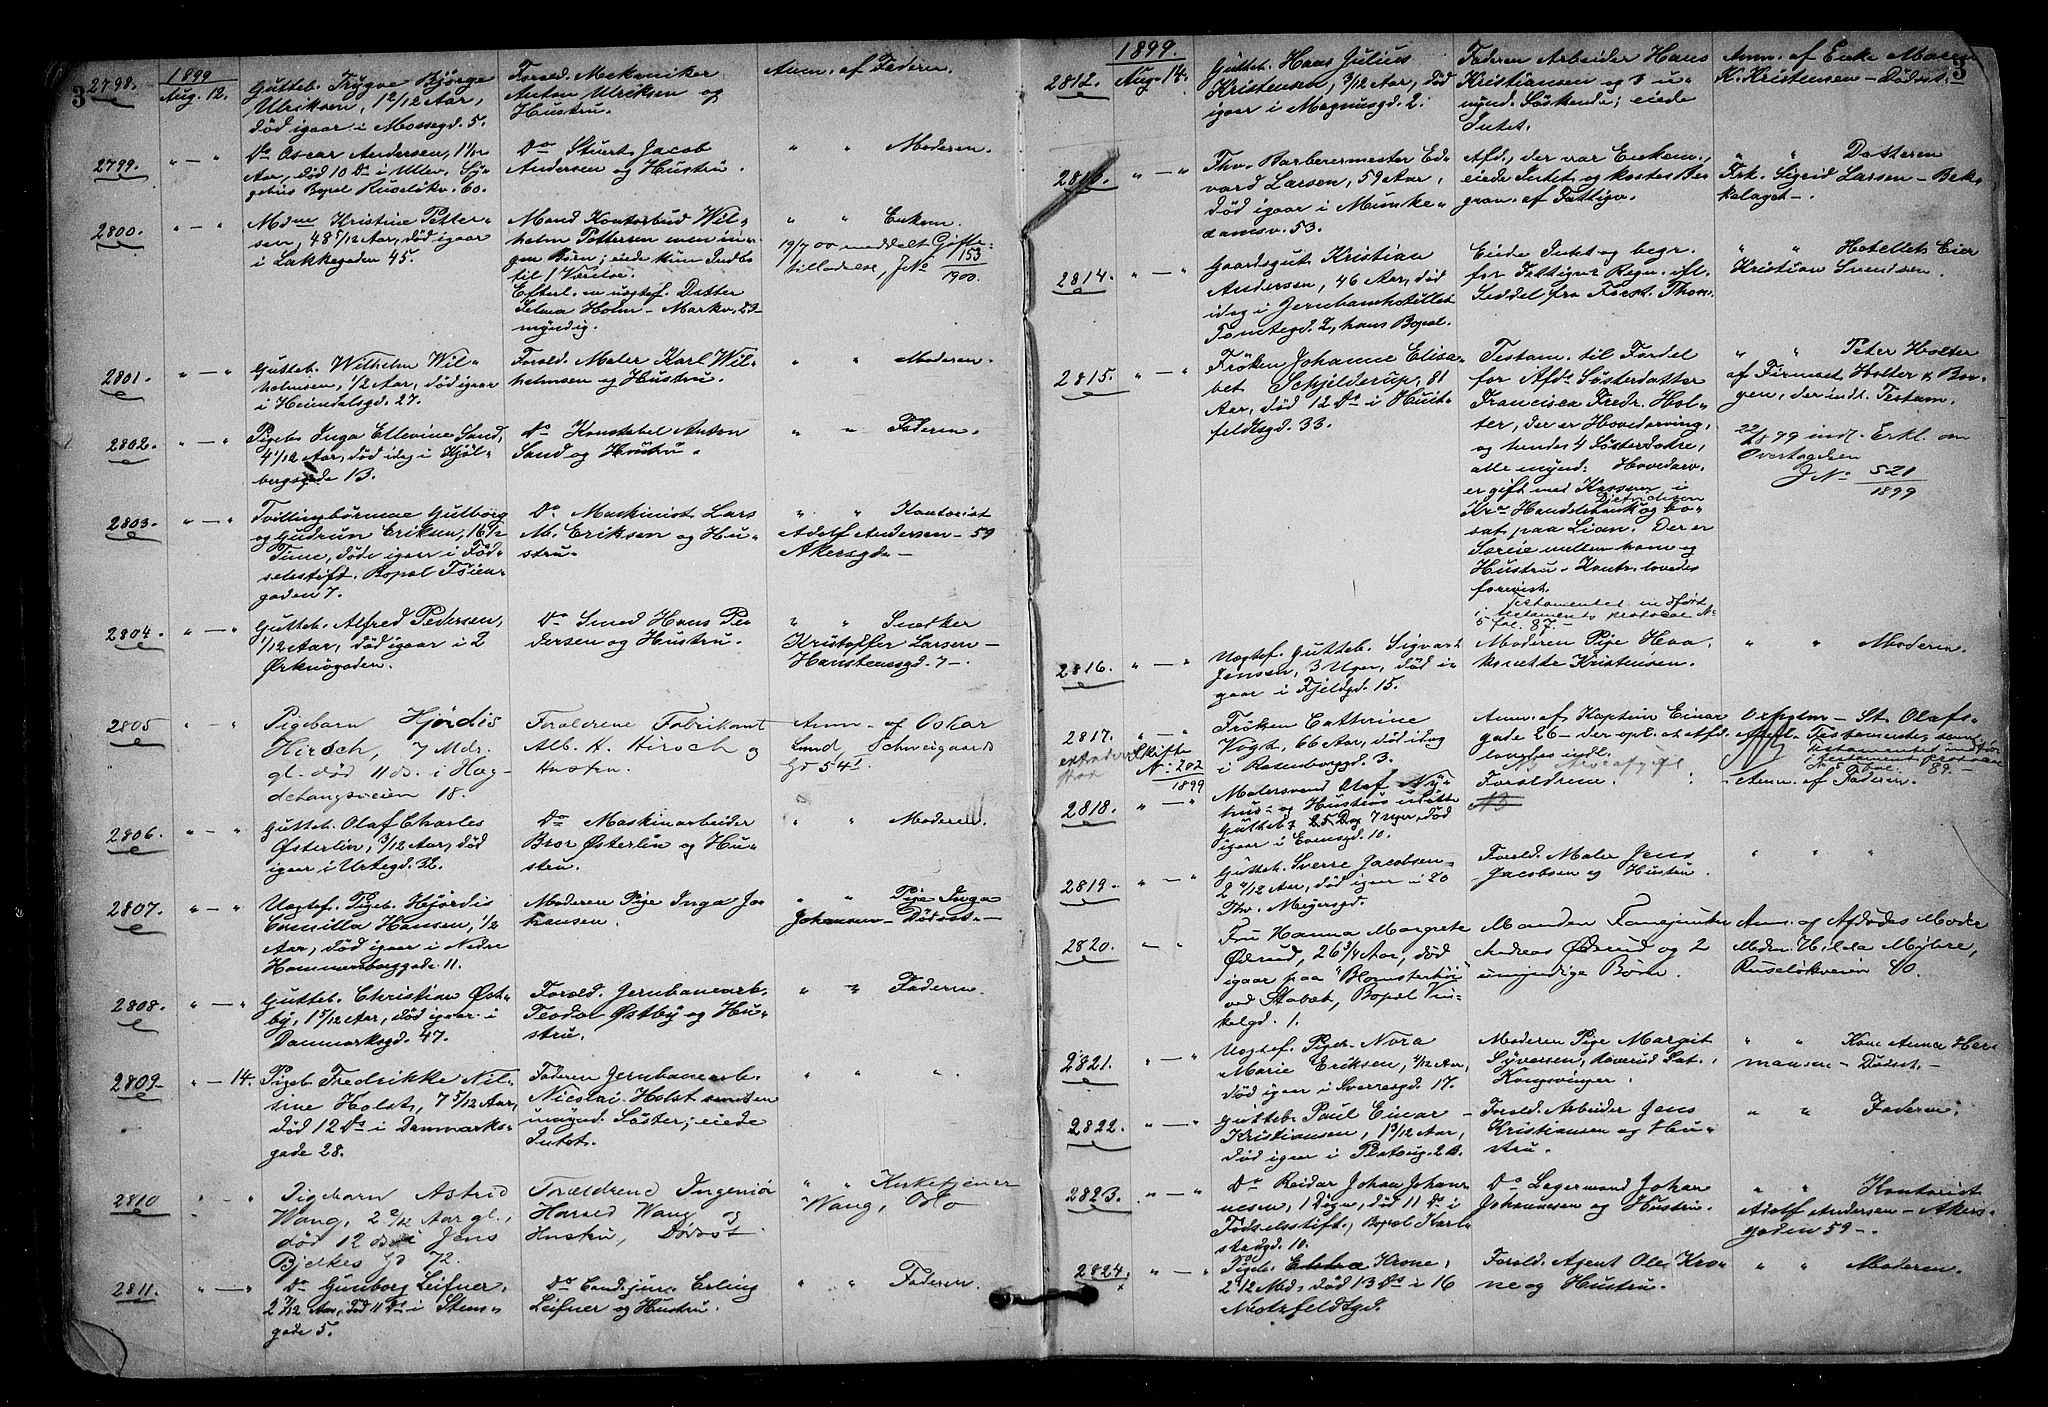 3
2798.
1899
Aug. 12.
Gutteb. Trygve Bjørge
Ulriksen, 1 2/12 Aar,
død igaar i Mossegd. 5.
Foræld. Mekaniker
Anton Ulriksen og
Hustru.
Anm. af Faderen.
2799.
" — "
Do Oscar Andersen, 1 1/12
Aar, død 10 Ds i Ullev. Sy-
gehus Bopel Ruseløkv. 60.
Do Stuert Jacob
Andersen og Hustru.
" " Moderen.
2800.
" — "
Mdme Kristine Petter-
sen, 48 5/12 Aar, død igaar
i Lakkegaden 45.
Mand Kontorbud Wil-
helm Pettersen men in-
gen Børn; eiede kun Indbo
til 1 Værelse.
Efterl. en uegtef. Datter
Selma Holm — Markv. 23
myndig.
" " Enkem.
19/7 00 meddelt Gifte-
tilladelse, J No 153
1900.
2801.
" — "
Gutteb. Wilhelm Wil-
helmsen, 1/2 Aar, død igaar
i Heimdalsgd. 27.
Foræld. Maler Karl Wil-
helmsen og Hustru.
" " Moderen.
2802.
" — "
Pigeb. Inga Ellevine Sand,
4 1/12 Aar, død idag i Kjøl-
berggade 13.
Do Konstabel Anton
Sand og Hustru.
" " Faderen.
2803.
" — "
Tvillingbørnene Gutborg
og Gudrun Eriksen, 16 1/2
Time, døde igaar i Fød-
selsstift. Bopæl Tøien-
gaden 7.
Do Maskinist Lars
M. Eriksen og Hu-
stru.
" " Kontorist
Adolf Andersen — 59
Akersgd. —
2804.
" — "
Gutteb. Alfred Pedersen,
1/12 Aar, død igaar i 2
Ørknøgaden.
Do Smed Hans Pe-
dersen og Hustru.
" " Snedker
Kristoffer Larsen —
Hanstensgd. 7 —.
2805
" "
Pigebarn Hjørdis
Hirsch, 7 Mdr.
gl. død 11 ds. i Hag-
dehaugsveien 18.
Forældrene Fabrikant
Alb. H. Hirsch og
Hustru.
Anm. af Oskar
Lund, Schweigaards
Gd 54 I
2806.
" — "
Gutteb. Olaf Charles
Østerlin, 3/12 Aar, død
igaar i Urtegd. 32.
Do Maskinarbeider
Bror Østerlin og Hu-
stru.
" " Moderen.
2807.
" — "
Uegtef. Pigeb. Hjørdis
Camilla Hansen, 1/2
Aar, død igaar i Nedre
Hammersborggade 11.
Moderen Pige Inga Jo-
hansen.
" " Pige Inga
Johansen — Dødsst. —
2808.
" — "
Gutteb. Christian Øst-
by, 1 5/12 Aar, død igaar i
Danmarksgd. 47.
Foræld. Jernbanearb.
Teodor Østby og Hu-
stru.
" " Faderen.
2809.
" — 14.
Pigeb. Fredrikke Nil-
sine Holst, 7 5/12 Aar,
død 12 Ds i Danmarks-
gade 28.
Faderen Jernbanearb.
Nicolai Holst samt en
umynd. Søster; eiede
Intet.
" " "
2810
" — "
Pigebarn Astrid
Wang, 2 2/12 Aar gl.,
død 12 ds i Jens
Bjelkes Gd 72.
Forældrene Ingeniør
Harald Wang og
Hustru, Dødsst
" " Kirketjener
Wang, Oslo
2811.
" — "
Do Gunborg Leifner,
2 7/12 Aar, død 11 Ds i Stens-
gade 5.
Do Cand. jur. Erling
Leifner og Hustru.
" " Faderen.
3
2812.
1899.
Aug. 14.
Gutteb. Hans Julius
Kristensen, 3/12 Aar, død
igaar i Magnusgd. 2.
Faderen Arbeider Hans
Kristiansen og 3 u-
mynd. Søskende; eiede
Intet.
Anm. af Enke Maren
K. Kristensen — Dødsst.
2813.
" — "
Fhv. Barbermester Ed-
vard Larsen, 59 Aar,
død igaar i Munke-
damsv. 53.
Afd., der var Enkem.,
eiede Intet og kostes Be-
grav. af Fattigv.
" " Datteren
Frk. Sigrid Larsen — Bek-
kelaget —.
2814.
" — "
Gaardsgut Kristian
Andersen, 46 Aar, død
idag i Jernbanhotellet
Tomtegd. 2, hans Bopæl.
Eiede Intet og begr.
for Fattigv. Regn. efl.
Seddel fra Forst. Thon.
" " Hotellets Eier
Kristian Svendsen.
2815.
" — "
Frøken Johanne Elisa-
bet Schjelderup, 81
Aar, død 12 Ds i Huit-
feldtsgd. 33.
Testam. til Fordel
for Afds Søsterdatter
Francisca Fredr. Hol-
ter, der er Hovedarving,
og hendes 4 Søsterdøtre,
alle mynd. Hovedarv.
er gift med Kasserer i
Kra Handelsbank og bo-
sat paa Lian. Der er
Særeie mellem ham og
Hustru. Kontr. lovedes
forevist.
Testamentet indført
i testaments protocol No
5 fol. 87. —
" " Peter Holter
af Firmaet Holter & Bor-
gen, der indl. Testam.
22/8 99 indl. Erkl. om
Overtagelsen
J No 521
1899
2816.
" — "
Uegtef. Gutteb. Sigvart
Jensen, 3 Uger, død i-
gaar i Fjeldgd. 15.
Moderen Pige Haa-
konette Kristensen.
" " Moderen.
2817.
" — "
Skifte
No 202
1899
Frøken Cathrine
Vogt, 66 Aar, død idag
i Rosenborggd. 3.
Anm. af Kaptein Einar
gade 26 — der opl. at Afd.
lovedes indl.
St. Olafs-
Testamente, som
Testamentet indført
i testament protocol
No 5 fol. 89. —
2818.
" — "
Malersvend Olaf Ny-
hus og Hustrus udøbte
Gutteb., 25 Dag 7 Uger, død
igaar i Enensgd. 10.
Forældrene.
Anm. af Faderen.
2819.
" — "
Gutteb. Sverre Jacobsen
2 4/12 Aar, død igaar i 20
Thv. Meyersgd.
Foræld. Maler Jens
Jacobsen og Hustru.
" " "
2820.
" — "
Fru Hanna Margrete
Øderud, 26 3/4 Aar, død
igaar paa "Blomsterhøi"
ved Stabæk, Bopæl Vin-
kelgd. 1.
Manden Fanejunker
Andreas Øderud og 2
umyndige Børn.
Anm. af Afdødes Moder
Mdm. Hilda Myhre,
Ruseløkveien 40.
2821.
" — "
Uegtef. Pigeb. Nora
Marie Eriksen, 4/12 Aar,
død igaar i Sverresgd. 17.
Moderen Pige Margit
Syversen, Sat.
Kongsvinger.
" " Kone Anna Her-
mansen — Dødsst. —
2822.
" — "
Gutteb. Paul Einar
Kristiansen, 1 3/12 Aar,
død igaar i Platoug. 2 B.
Foræld. Arbeider Jens
Kristiansen og Hu-
stru.
" " Faderen.
2823.
" — "
Do Reidar Johan Johan-
nesen, 1 Døgn, død 11 Ds i
Fødselsstift., Bopæl Karl-
stadgd. 10.
Do Lagermand Johan
Johannesen og Hustru.
" " Kontorist
Adolf Andersen — Akers-
gaden 59 —
2824.
" — "
Pigeb. Krone,
2 1/2 Md., død 13 Ds i 16
Motzfeldtsgd.
Foræld. Agent Ole Kro-
ne og Hustru.
" " Moderen.